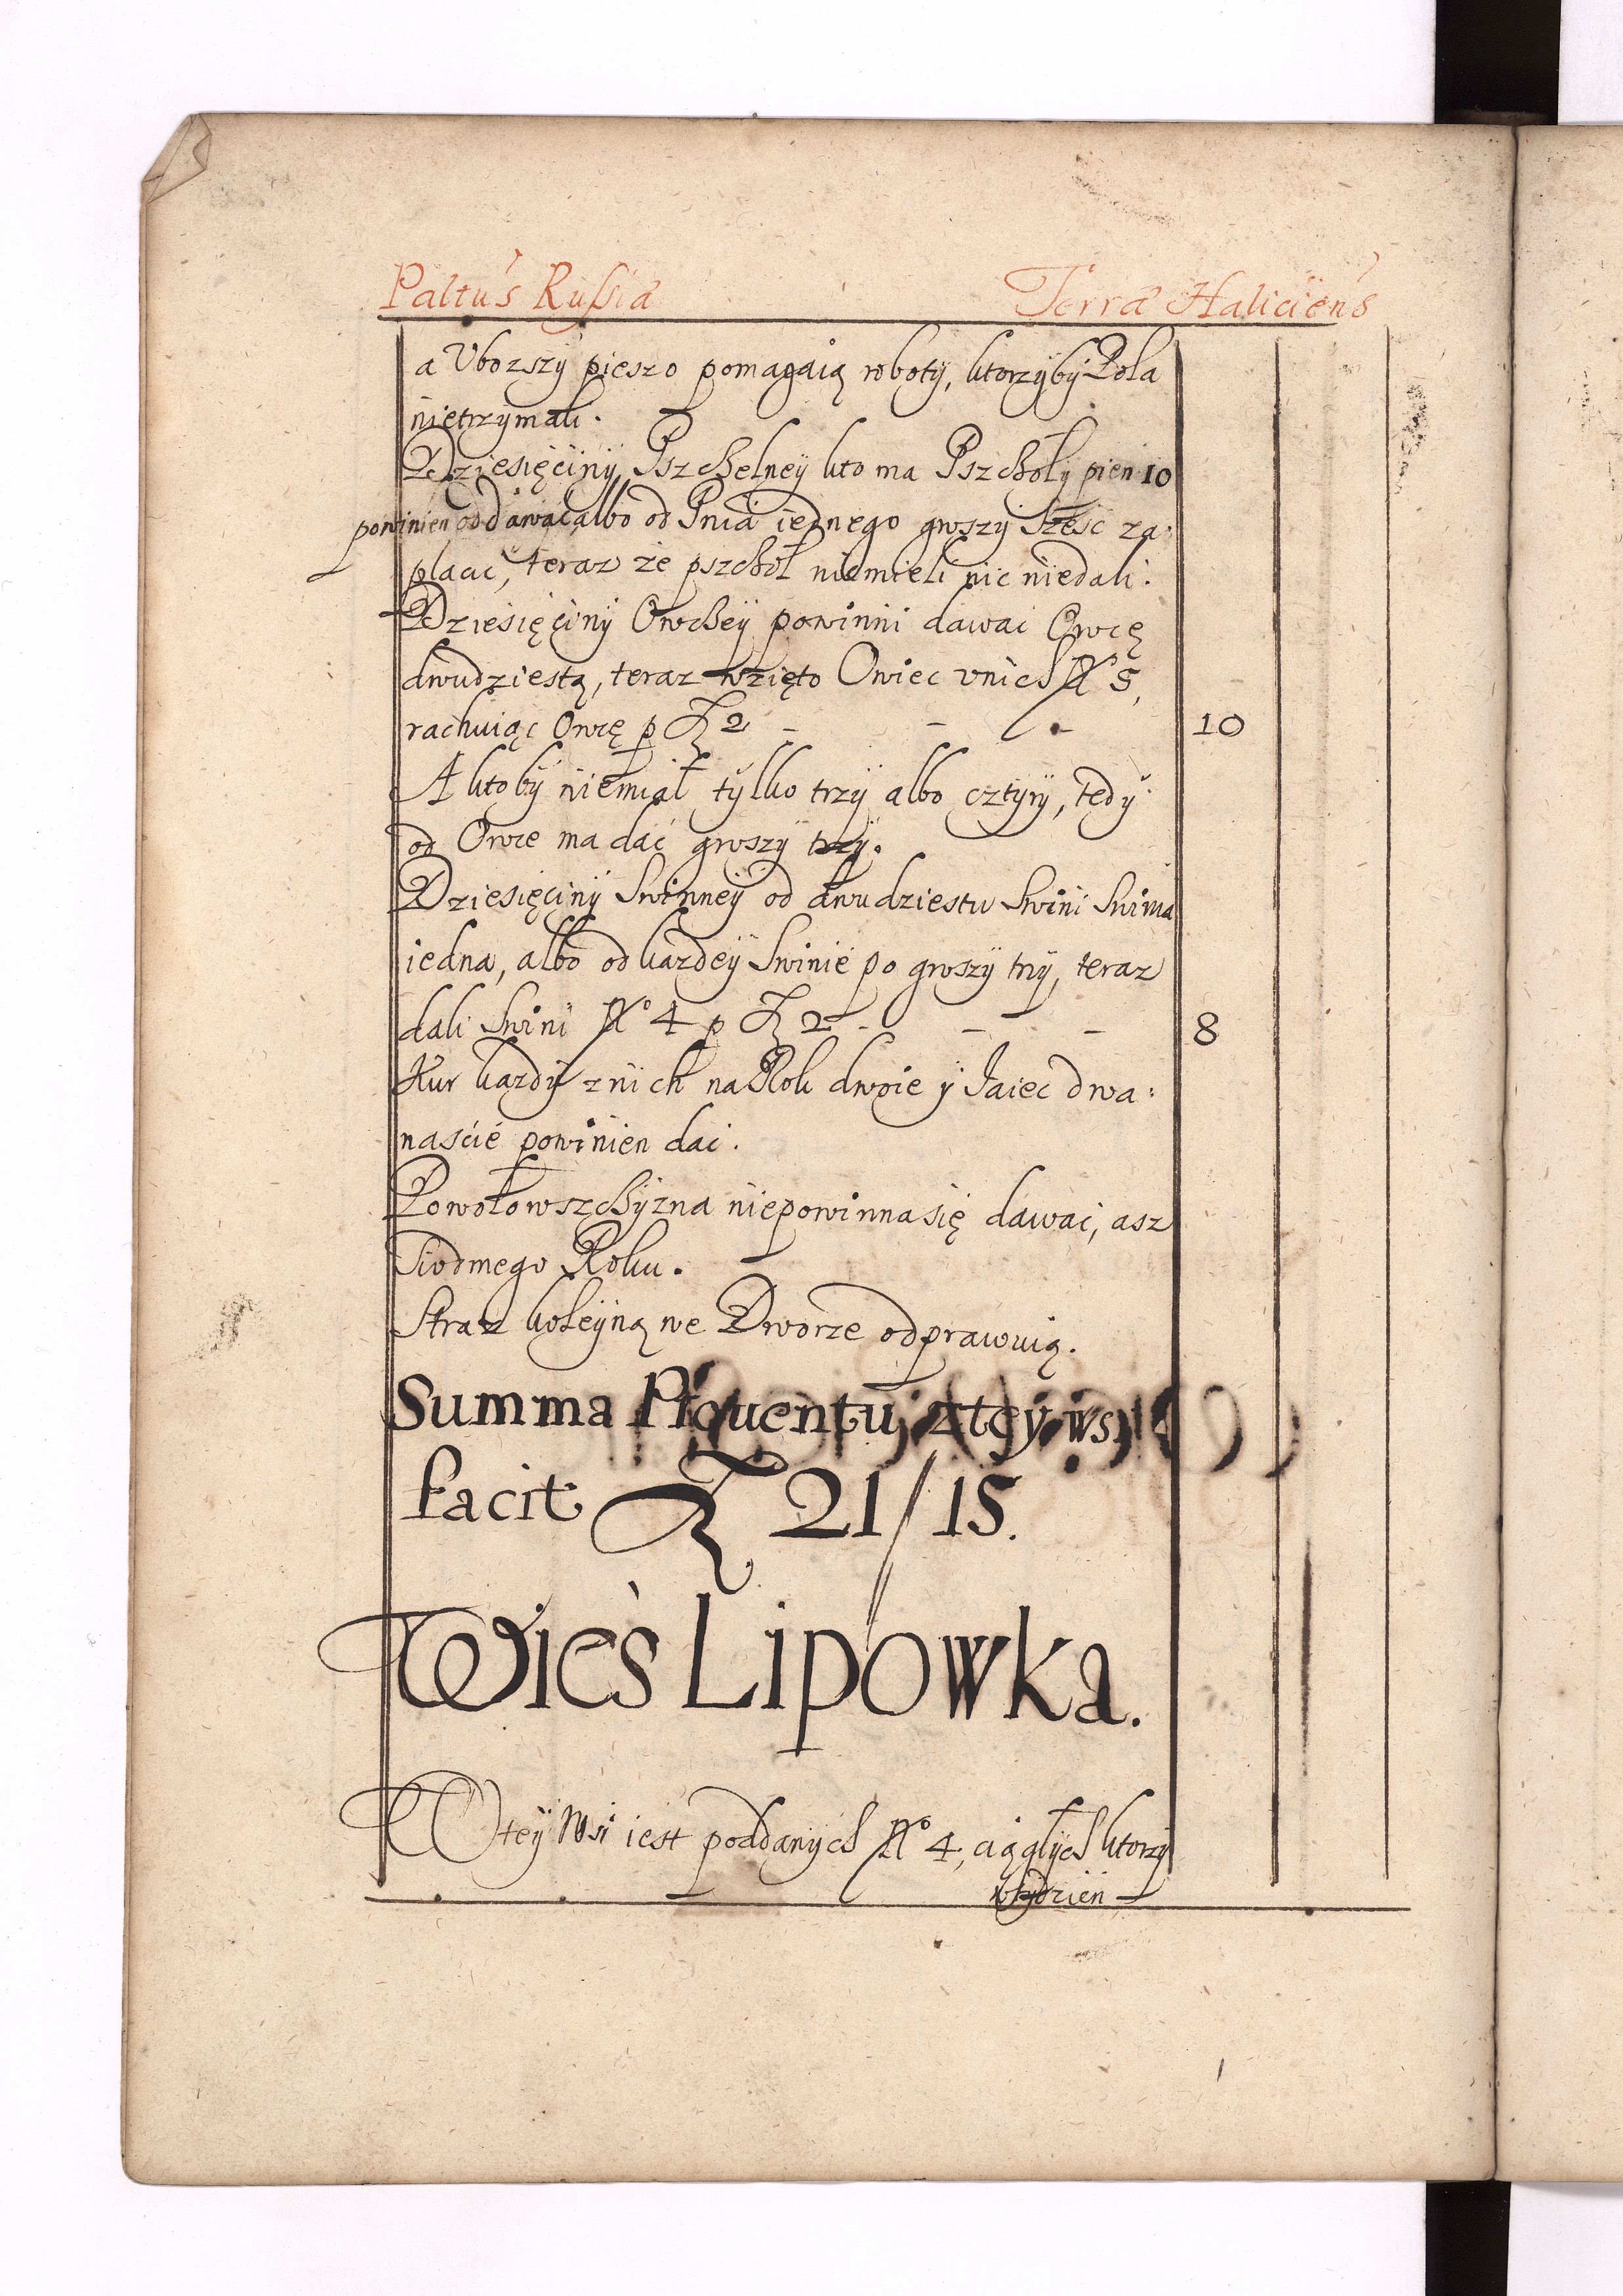 Paltus Rußia Terra Haliciens
a Vbozszÿ pieszo pomagaią robotÿ, ktorzÿbÿ Pola
nietrzymali.
Dziesięcinÿ Pszchelneÿ kto ma Pszchołÿ pien 10
powinien oddawać, albo od Pnia iednego groszÿ sześć za:
płacić, teraz że pszchoł niemieli nic niedali.
Dziesięcinÿ Owcheÿ powinni dawać Owcę
dwudziestą, teraz wzięto Owiec vnich No 5,
rachuiąc Owcę p Fl 2 - - - 10
A ktobÿ niemiał tÿlko trzÿ albo cztyrÿ, tedÿ
od Owce ma dać groszÿ trzÿ.
Dziesięcinÿ Swinneÿ od dwudziestu Swini Swinia
iedna, albo od każdeÿ Swinie po groszÿ trzÿ, teraz
dali Swini No 4 p Fl 2 - - - 8
Kur każdÿ znich na Rok dwoie ÿ Jaiec dwa:
naście powinien dać.
Powołowszchÿzna niepowinna się dawać, asz
Siodmego Roku.
Straż koleÿną we Dworze odprawuią.
Summa Prouentu zteÿ wsi
facit Fl 21/15.
Wieś Lipowka.
W teÿ Wsi iest poddanÿch No 4, ciągłÿch ktorzÿ
wtÿdzień